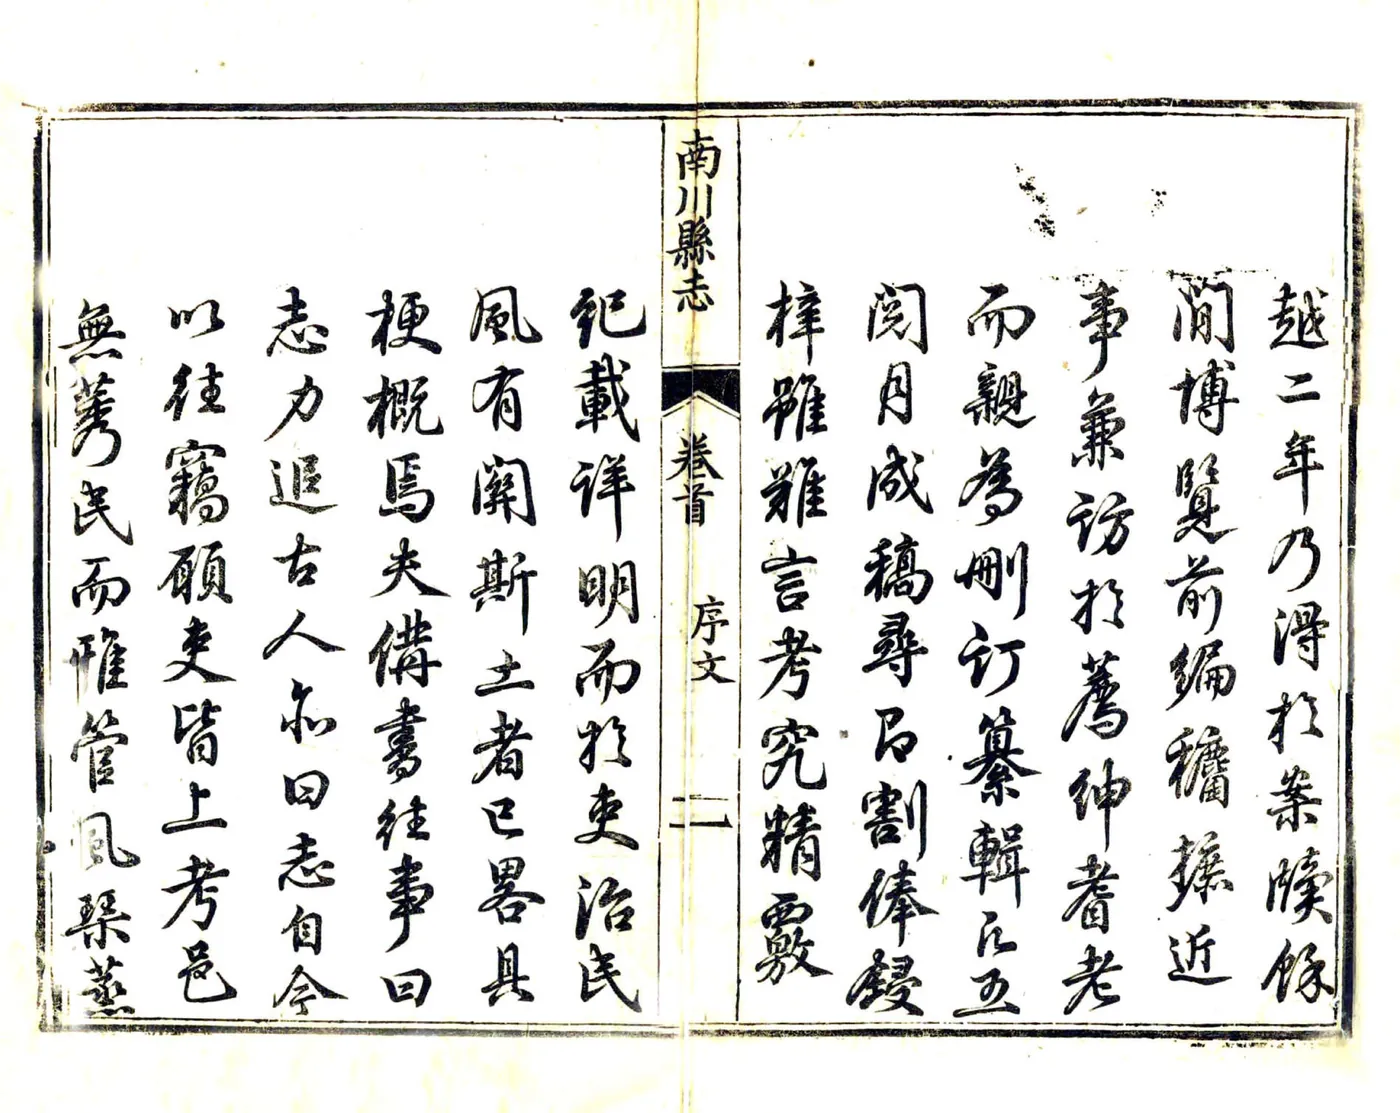 越二年乃得於案牘餘
閒博覽前編穭摭近
事兼訪於薦紳耆老
而親為刪訂纂輯凡五
閱月成稿尋即割俸鋟
梓雖難言考究精覈
南川縣志
卷首
序文
二
紀載詳明而於吏治民
風有關斯土者已畧具
梗概焉夫備書往事曰
志力追古人亦曰志自今
以往竊願吏皆上考邑
無莠民而惟管風琹蒸